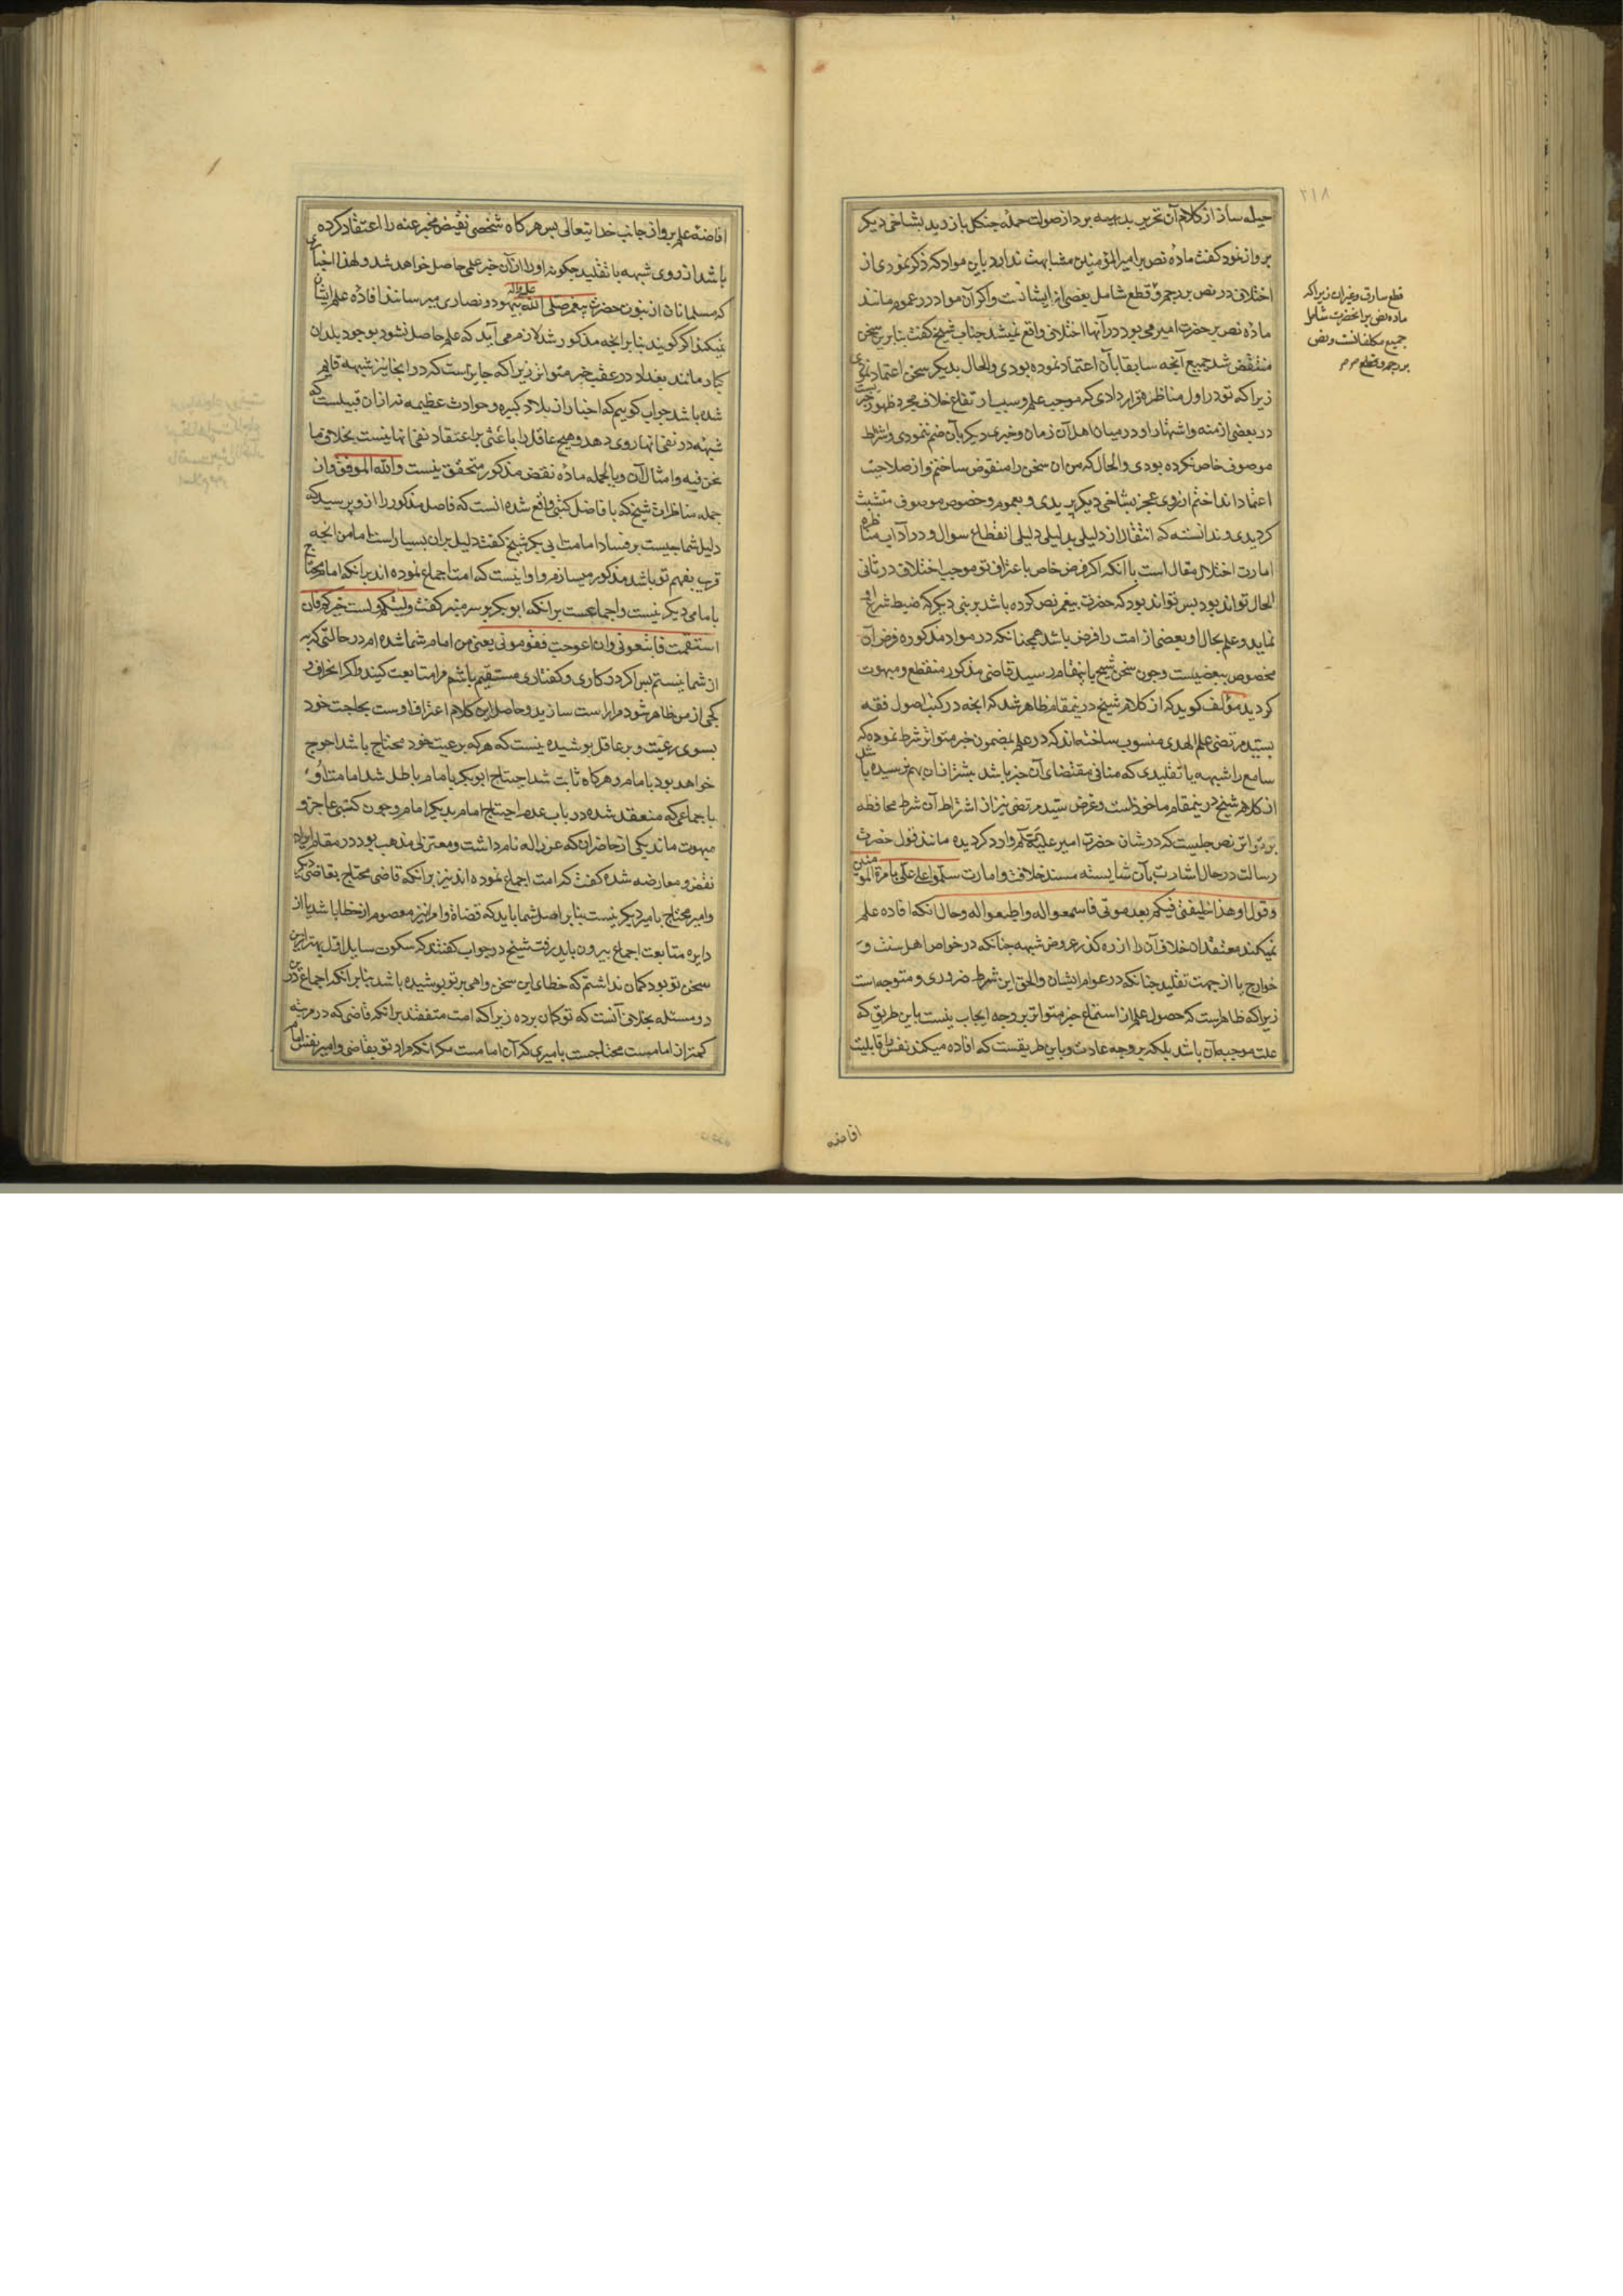 ۲۱۸
حیله ساز از کلام آن تحریر بدیهیه بر داز صولت حمله چنکل باز زید بشاخی دیکر
پرواز نمود کفت مادۀ نص بر امیر المؤمنین مشابهت ندارد باین مواد که ذکر نمودی از
اختلاف در نص بر رجم و قطع شامل بعضی از ایشانست و اکر آن مواد در عموم مانند
مادۀ نص بر حضرت امیر می بود در آنها اختلافی واقع نمیشد جناب شیخ کفت بنابر این سخن
منتقض شد جمیع آنچه سابقا بآن اعتماد نموده بودی والحال بدیکر سخن اعتماد نمودی
زیرا که تو در اول مناظره قرار دادی که موجب علم و سبب ارتفاع خلاف مجرد ظهور خبریست
در بعضی ازمنه و اشتهار او در میان اهل آن زمان و خبری دیکر بآن ضم ننمودی و شرط
موصوفی خاص نکرده بودی والحال که من ان سخن را منقوض ساختم و از صلاحیت
اعتماد انداختم از روی عجز بشاخی دیکر پریدی و بعموم و خصوص موصوف متشبث
کردیدی و ندانسته که انتقال از دلیلی بدلیلی دلیلی انقطاع سوال و در آداب مناظره
امارت اختلال مقال است با آنکه اکر فرض خاص باعتراف تو موجب اختلاف در ثانی
الحال تواند بود پس تواند بود که حضرت پیغمبر نص کرده باشد بر نبی دیکر که ضبط شرایع
نماید و علم بحال او بعضی از امت را فرض باشد همچنانکه در مواد مذکوره فرض آن
مخصوص ببعضیست و چون سخن شیخ باینمقام رسید قاضی مذکور منقطع و مبهوت
کردید مؤلف کوید که از کلام شیخ درینمقام ظاهر شد که انچه در کتب اصول فقه
بسید مرتضی علم الهدی منسوب ساخته اند که در علم بمضمون خبر متواتر شرط نموده که
سامع را شبهه یا تقلیدی که منافی مقتضای آن خبر باشد بیشتر از ان بهم نرسیده باشد
از کلام شیخ درینمقام ماخوذ است و غرض سید مرتضی نیز از اشتراط آن شرط محافظه
بر تواتر نص جلیست که در شان حضرت امیر علیه السلام وارد کردیده مانند قول حضرت
رسالت در حال اشارت بآن شایسته مسند خلافت و امارت سلموا علی علی بامرة المومنین
و قول او هذا خلیفتی فیکم بعد موتی فاسمعوا له واطیعوا له و حال انکه افاده علم
نمیکند معتقدان خلاف آن را از ره کذر عروض شبهه چنانکه در خواص اهل سنت و
خوارج یا از جهت تقلید چنانکه در عوام ایشان والحق این شرط ضروری و متوجه است
زیرا که ظاهر است که حصول علم از استماع خبر متواتر بر وجه ایجاب نیست باین طریق که
علت موجبه آن باشد بلکه بر وجه عادت و باین طریقست که افاده میکند نفس را قابلیت
قطع سارق و غیر ان زیرا که
ماده نص بر انحضرت شامل
جمیع مکلفانست و نص
بر رجم و قطع
افاضه
افاضۀ علم برو از جانب خدایتعالی پس هرکاه شخصی نقیض مخبر عنه را اعتقاد کرده
باشد از روی شبهه یا تقلید چکونه او را از آن خبر علمی حاصل خواهد شد و لهذا اخباری
که مسلمانان از نبوت حضرت پیغمبر صلی الله علیه واله بیهود و نصاری میرسانند افاده علم ایشان
نمیکند اکر کویند بنابر انچه مذکور شد لازم می آید که علم حاصل نشود بوجود بلدان
کبار مانند بغداد در عقب خبر متواتر زیرا که جایز است که در انجا نیز شبهه قایم
شده باشد جواب کوییم که اخبار از بلاد کبیره و حوادث عظیمه نه از ان قبیلست که
شبهه در نفی انها روی دهد و هیچ عاقل را باعثی بر اعتقاد نفی انها نیست بخلاف ما
نحن فیه و امثال آن و بالجمله مادۀ نقض مذکور متحقق نیست والله الموفق و از
جمله مناظرات شیخ که با فاضل کتبی واقع شده انست که فاضل مذکور را از و پرسید که
دلیل شما چیست بر فساد امامت ابی بکر شیخ کفت دلیل بران بسیار است اما من انچه
قریب بفهم تو باشد مذکور میسازم و او اینست که امت اجماع نموده اند بر انکه امام محتاج
بامامی دیکر نیست و اجماعست بر انکه ابو بکر بر سر منبر کفت ولیتکم ولست بخیرکم فان
استقمت فاتبعونی وان اعوججت فقومونی یعنی من امام شما شده ام در حالتی که به
از شما نیستم پس اکر در کاری و کفتاری مستقیم باشم مرا متابعت کنید و اکر انحراف و
کجی از من ظاهر شود مرا راست سازید و حاصل این کلام اعتراف اوست بحاجت خود
بسوی رعیت و بر عاقل پوشیده نیست که هر که برعیت خود محتاج باشد احوج
خواهد بود بامام و هرکاه ثابت شد احتیاج ابو بکر بامام باطل شد امامت او
باجماعی که منعقد شده در باب عدم احتیاج امام بدیکر امام و چون کتبی عاجز و
مبهوت ماند یکی از حاضران که عزاله نام داشت و معتزلی مذهب بود در مقام ایراد
نقض و معارضه شده کفت که امت اجماع نموده اند نیز بر انکه قاضی محتاج بقاضی دیکر
و امیر محتاج بامیر دیکر نیست بنابر اصل شما باید که قضاة و امرا نیز معصوم از خطا باشد یا از
دایره متابعت اجماع بیرون باید رفت شیخ در جواب کفتند که سکوت سایل اول بهتر ازین
سخن تو بود کمان نداشتم که خطای این سخن واهی بر تو پوشیده باشد بنابر انکه اجماع درین
دو مسئله بخلاف آنست که تو کمان برده زیرا که امت متفقند بر انکه قاضی که در مرتبه
کمتر از امامست محتاجست بامیری که آن امامست مکر انکه مراد تو بقاضی و امیر نفس امام